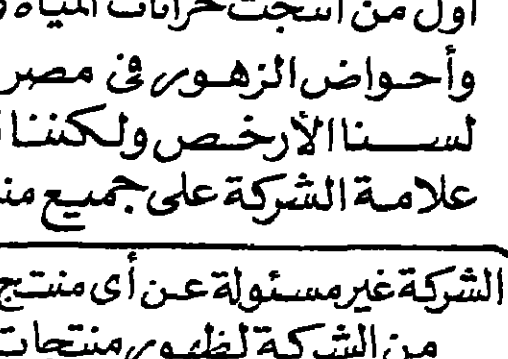 أول من أنتجت خزانات المياه
وأحواض الزهور فى مصر
لسنا الأرخص ولكننا
علامة الشركة على جميع
الشركة غير مسئولة عن أى منتج
من الشركة لظهور منتجات